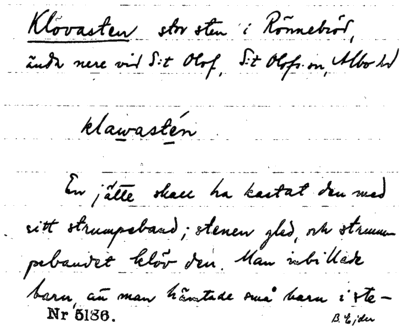 Klövasten stor sten i Rönnebröd,
ända nere vid S:t Olof, S:t Olofs sn, Albo hd
klawastén
En jätte skall ha kastat den med
sitt strumpeband; stenen gled, och strum-
pebandet klöv den. Man inbillade
barn, att man hämtade små barn i ste-
Nr 5186.
B. Ejder